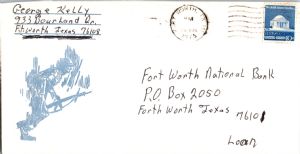 George Kelly
933 Dourband Dr.
Ft Worth Texas 76108
PM
1975
Fort Worth National Bank
P.O. Box 2050
Forth Worth Texas
76101
Loan